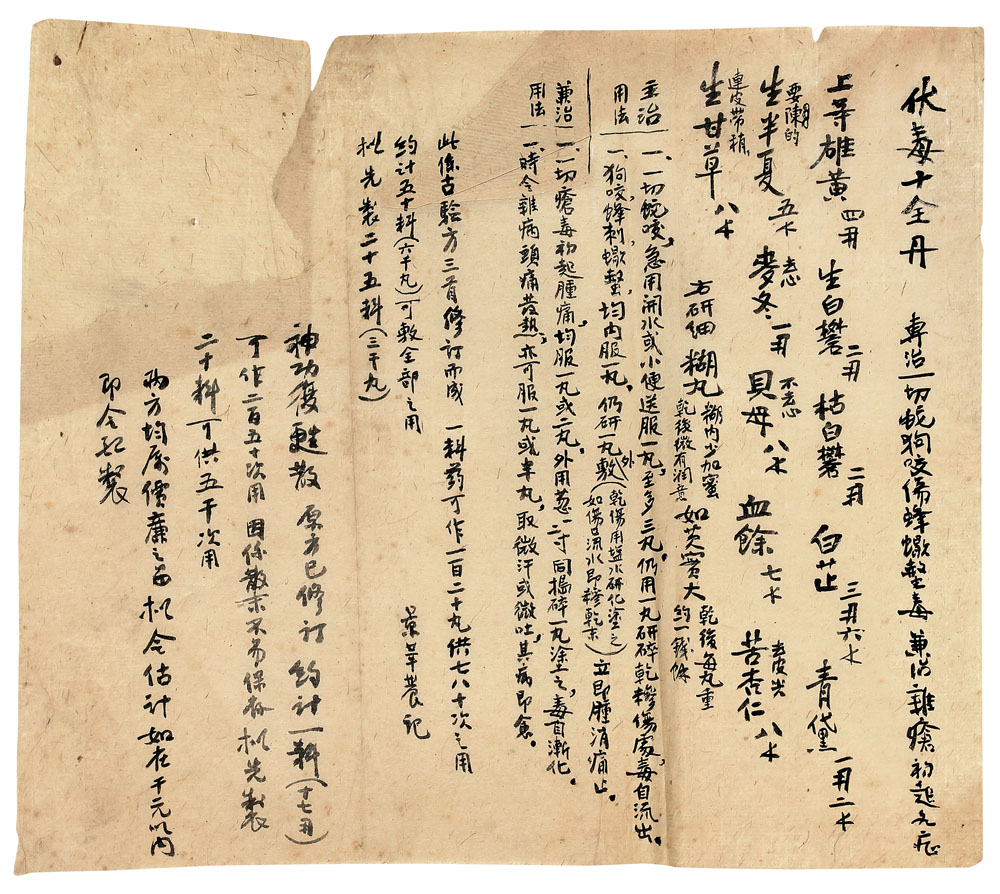 伏毒十全丹　專治一切蛇狗咬傷蜂蠍螫毒兼治雜瘡初起各症
上等雄黃四兩　生白礬二兩　枯白礬二兩　白芷三兩六水　青黛一兩二水
要陳的
生半夏五水　去心麥冬一兩　不去心貝母八水　血餘七水　去皮尖苦杏仁八水
連皮帶稍
生甘草八水　右研細糊丸　糊內少加蜜乾後微有潤意　如芡實大　乾後每丸重約一錢餘
主治　一、一切蛇咬，急用開水或小便送服一丸，至多三丸，仍用一丸研碎乾摻傷處，毒自流出。
用法　一、狗咬，蜂刺，蠍螫，均內服一丸，仍研一丸外敷（乾傷用鹽水研化塗之如傷已流水即摻乾末）立即腫消痛止。
兼治　一、一切瘡毒初起腫痛，均服一丸或二丸，外用葱一寸同搗碎一丸塗之，毒自漸化。
用法　一、時令雜病頭痛發熱，亦可服一丸或半丸，取微汗或微吐，其病即愈。
此係古驗方三首修訂而成　一料药可作一百二十丸供七八十次之用
約計五十料（六千丸）可敷全部之用　葉華農記
拟先製二十五料（三千丸）
神功復甦散　原方已修訂　約計一料（十七兩）
可作二百五十次用　因係散末不易保存　拟先製
二十料可供五千次用
兩方均屬價廉之品　拟令估計如在千元以內
即令配製